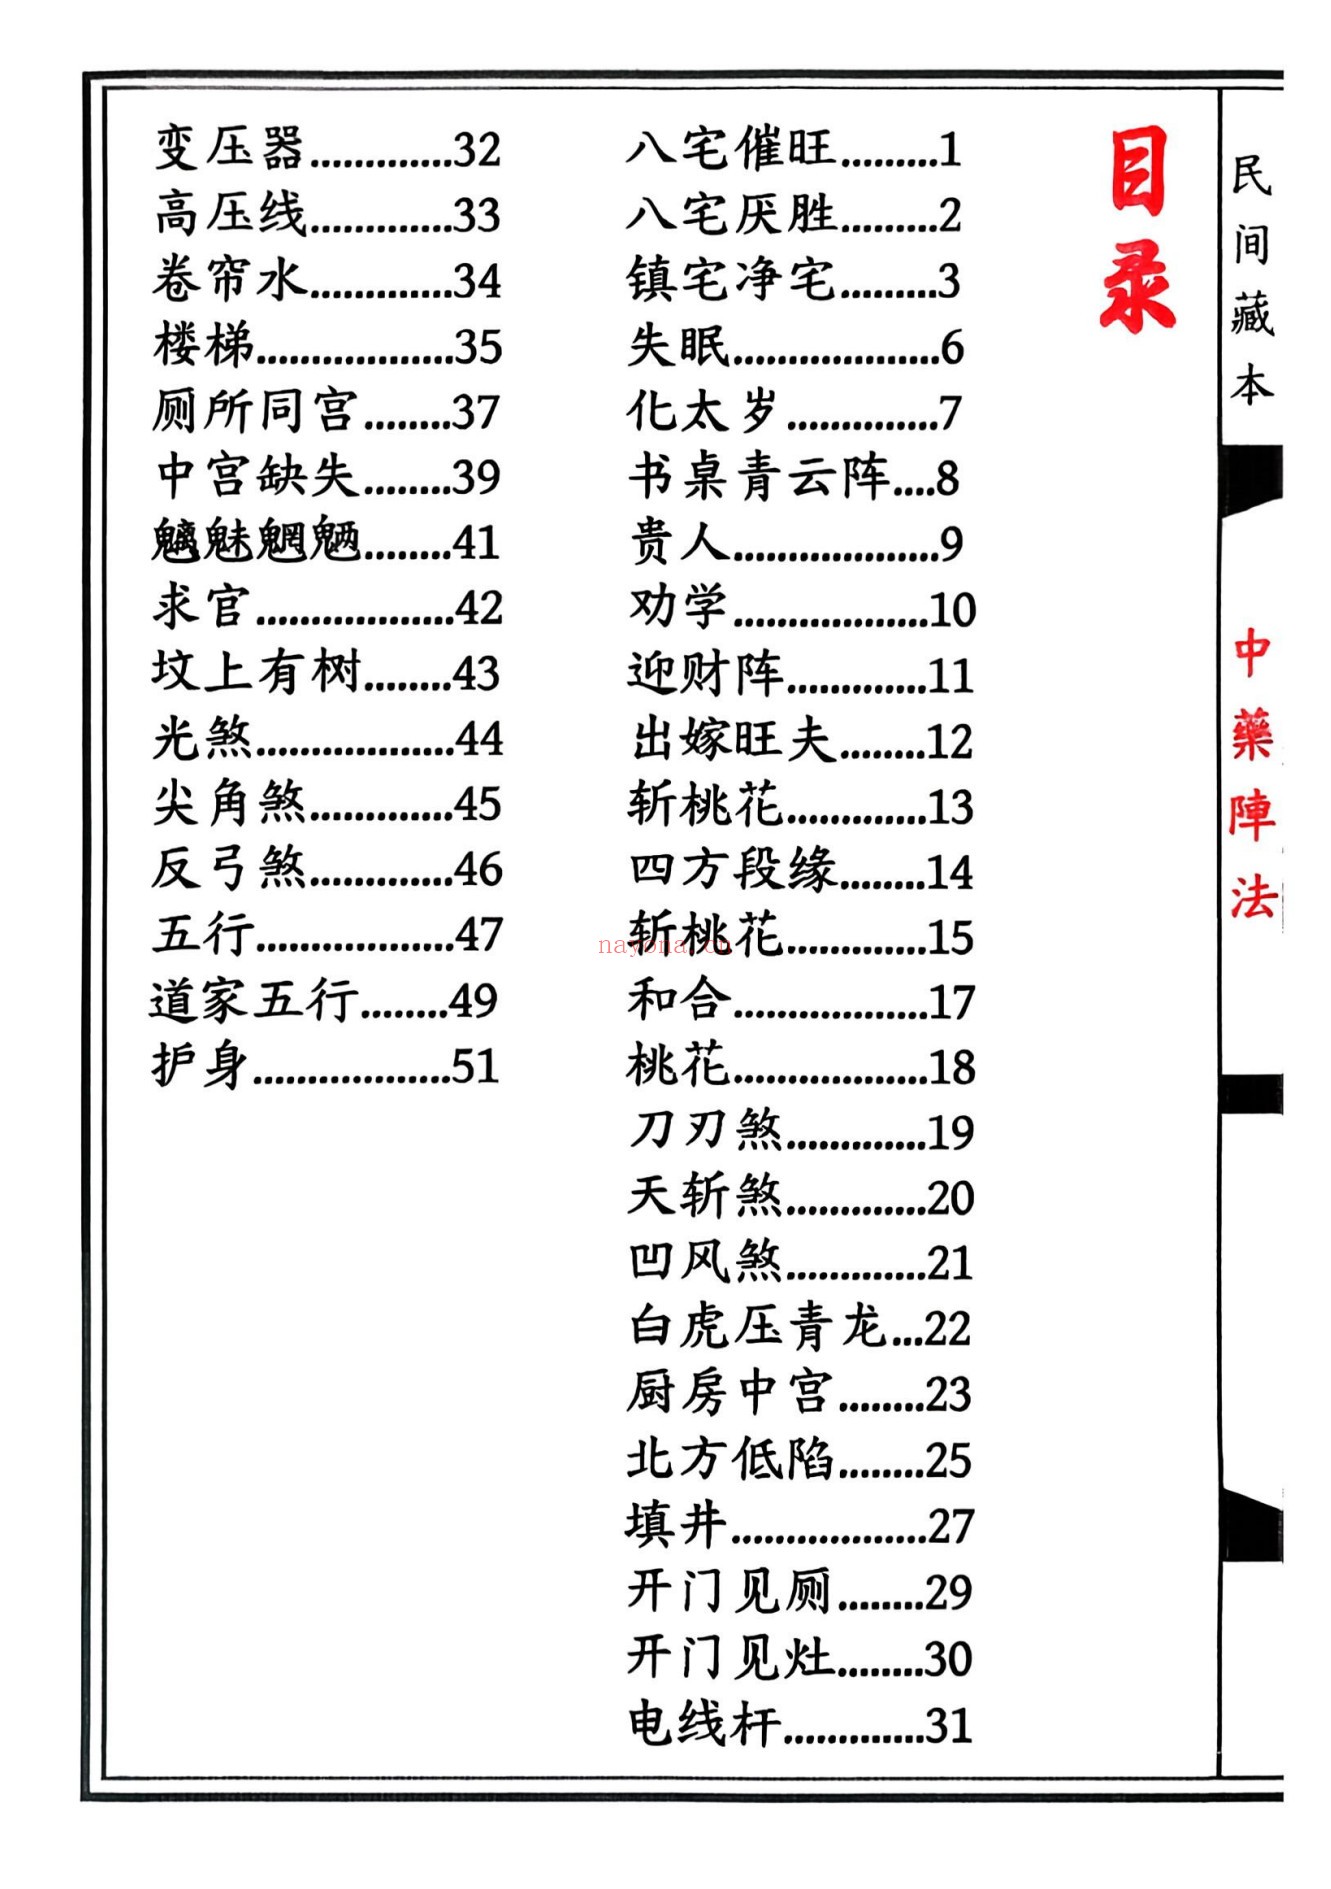 民间藏本
中藥陣法
目录
八宅催旺.........1
八宅厌胜.........2
镇宅净宅.........3
失眠...................6
化太岁..............7
书桌青云阵....8
贵人...................9
劝学..................10
迎财阵.............11
出嫁旺夫........12
斩桃花.............13
四方段缘........14
斩桃花.............15
和合..................17
桃花..................18
刀刃煞.............19
天斩煞.............20
凹风煞.............21
白虎压青龙...22
厨房中宫........23
北方低陷........25
填井..................27
开门见厕........29
开门见灶........30
电线杆.............31
变压器.............32
高压线.............33
卷帘水.............34
楼梯..................35
厕所同宫........37
中宫缺失........39
魑魅魍魉........41
求官..................42
坟上有树........43
光煞..................44
尖角煞.............45
反弓煞.............46
五行..................47
道家五行........49
护身..................51
nayona.cn